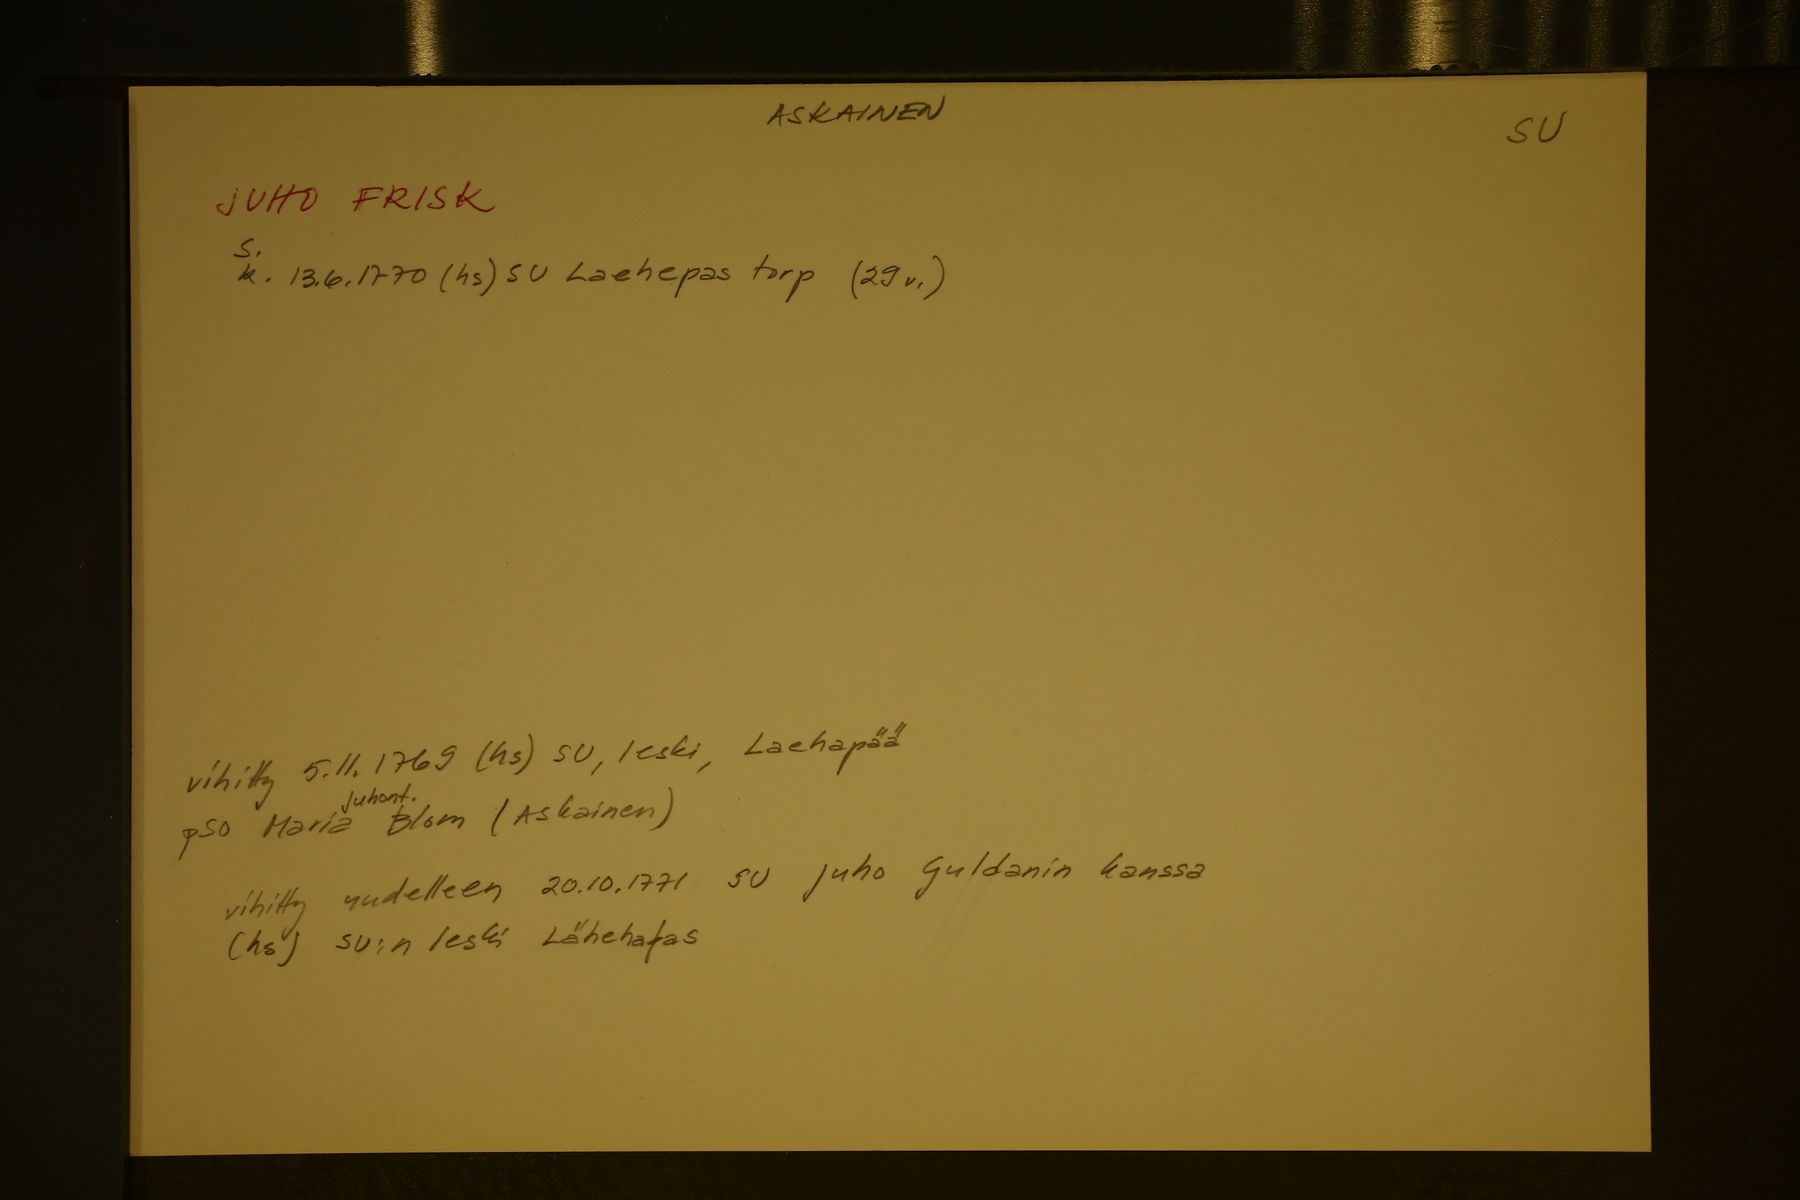 ASKAINEN
SU
JUHO FRISK
S.
k. 13.6.1770 (hs) SU Laehepas torp (29 v.)
vihitty 5.11.1769 (hs) SU, leski, Laehapää
Juhont.
pso Maria Blom (Askainen)
vihitty uudelleen 20.10.1771 SU Juho Guldanin kanssa
(hs) SU:n leski Lähehafas